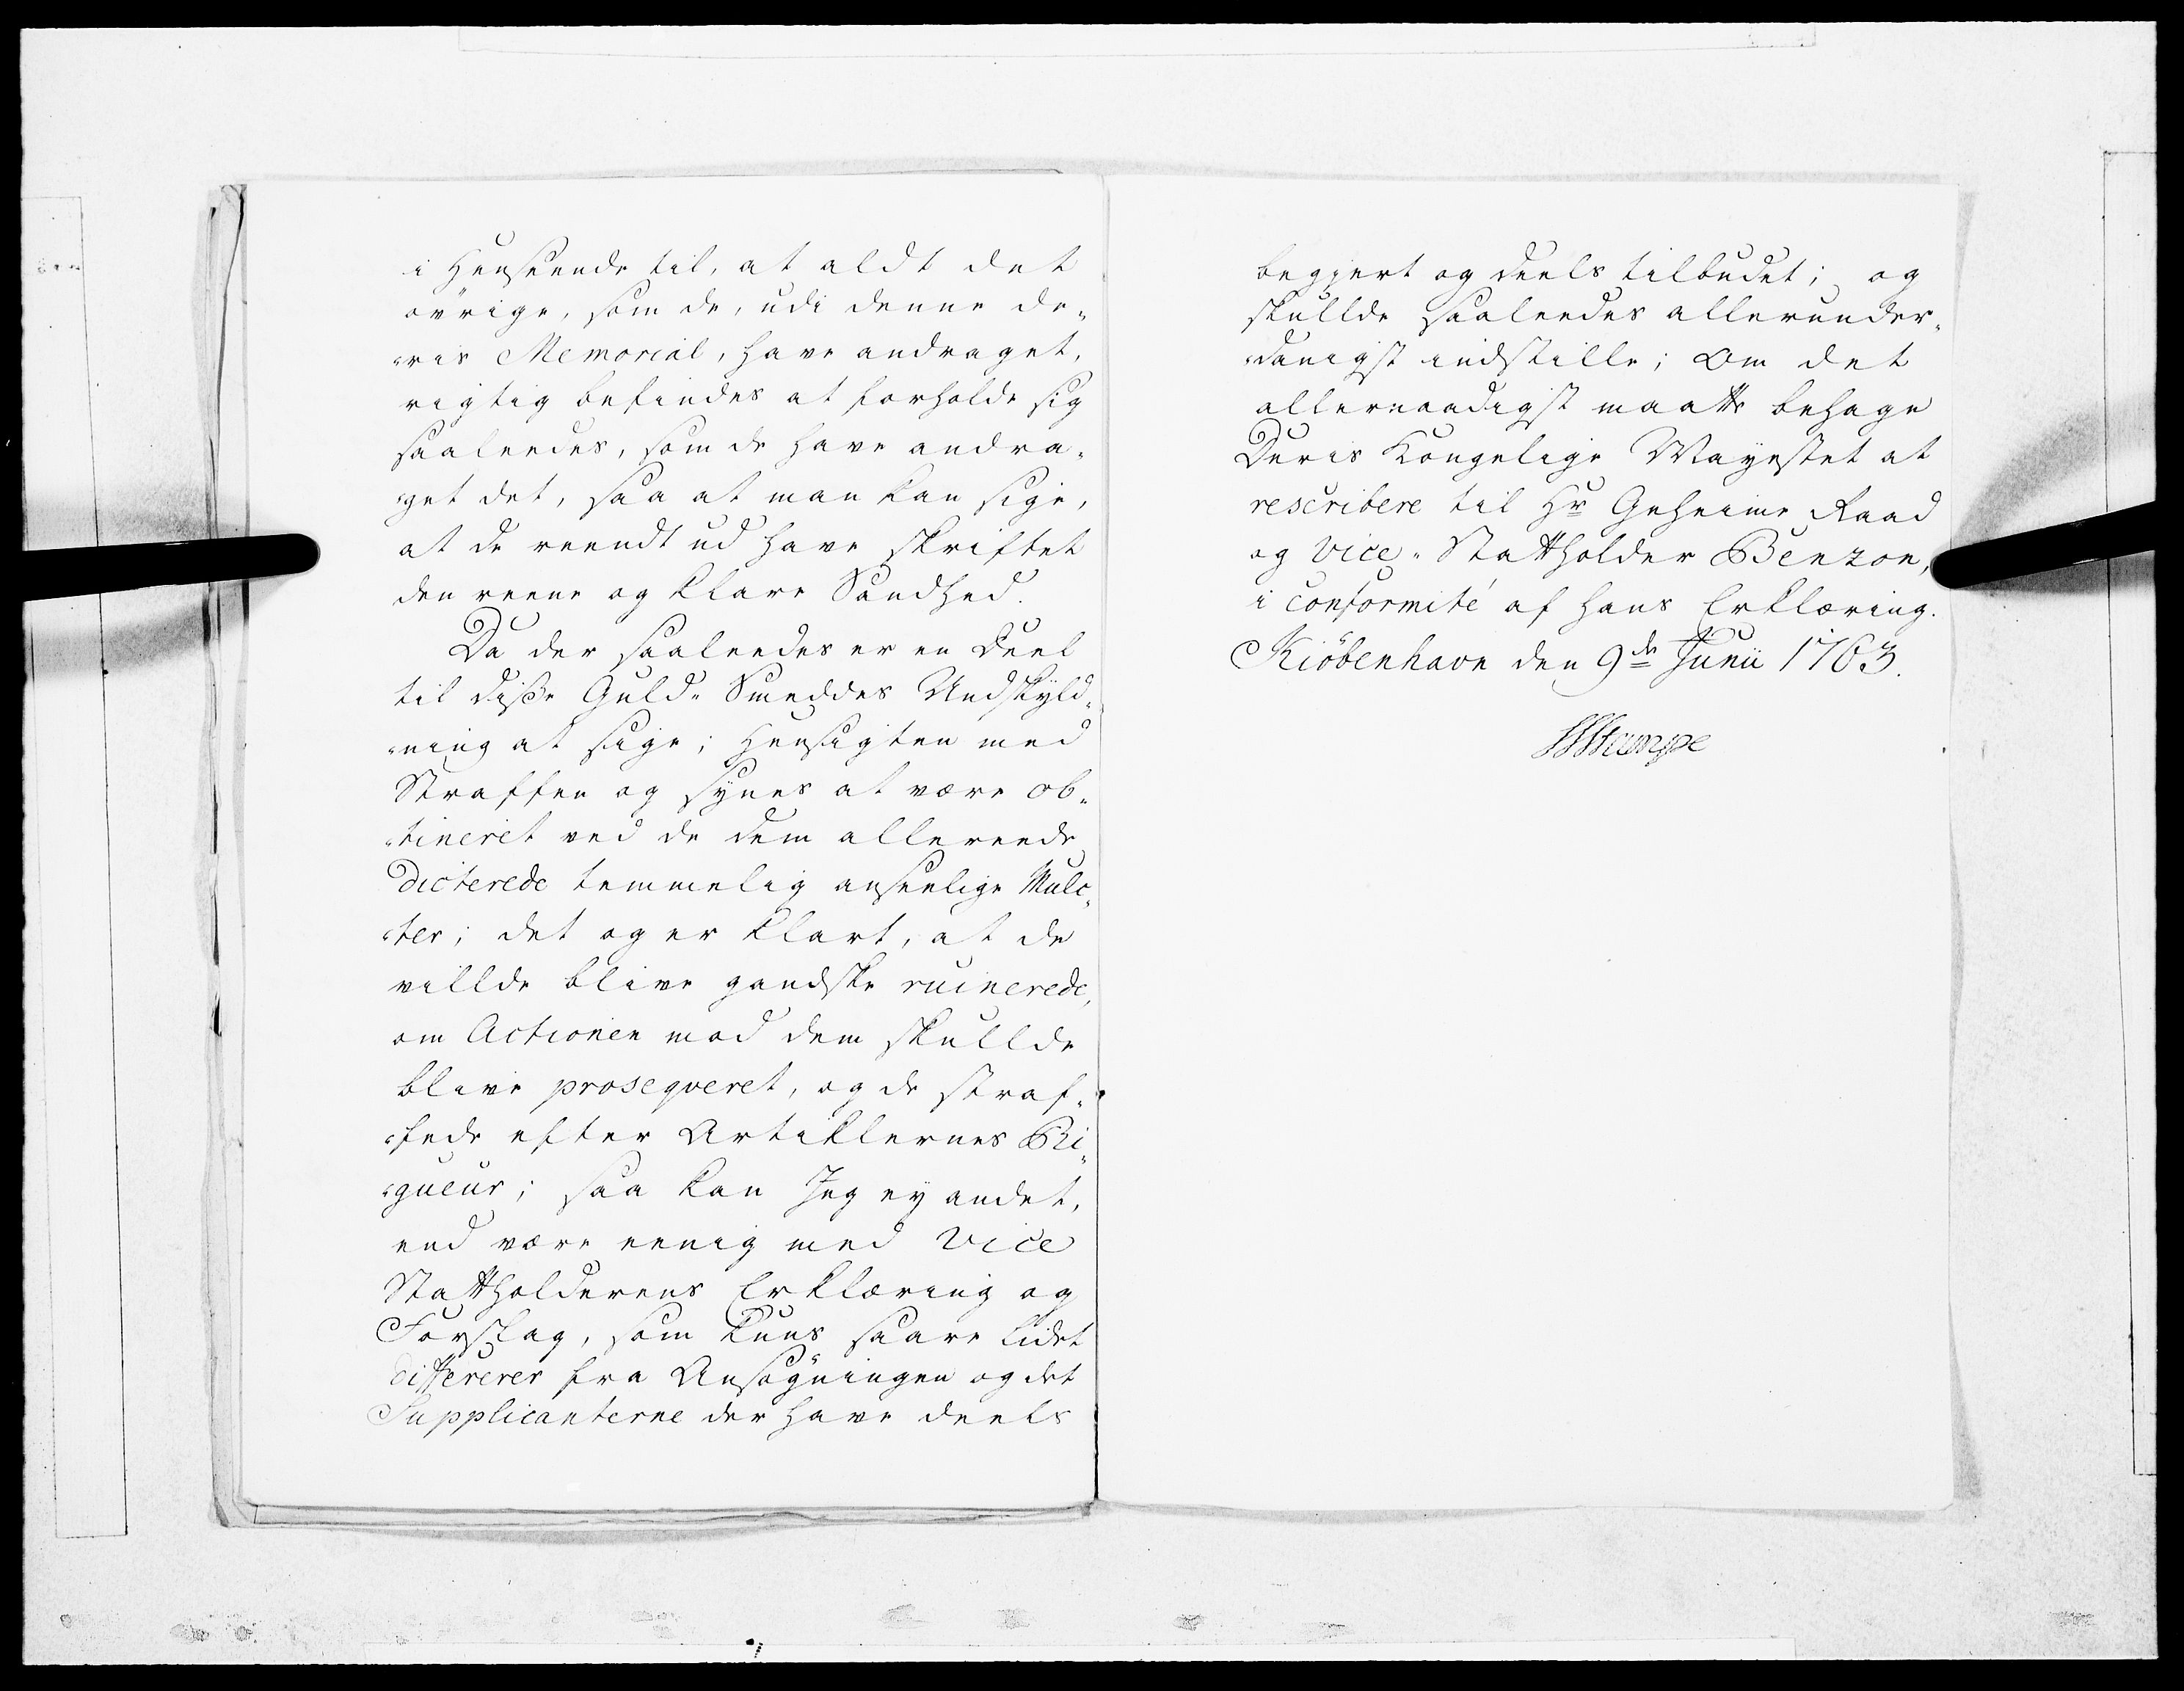 i Henseende til, at aldt det
øvrige, som de, udi denne de-
-ris Memorial, have andraget,
rigtig befindes at forholde sig
saaleedes, som de have andra-
-get det, saa at man kan sige,
at de reendt ud have skriftet
den reene og klare Sandhed.
Da der saaleedes er en Deel
til disse Guld-Smeddes Undskyld-
-ning at sige; Hensigten med
Straffen og synes at være ob-
-tineret ved de dem allereede
dicterede temmelig anseelige Mulc-
-ter; det og er klart, at de
villde blive gandske ruinerede,
om Actionen mod dem skullde
blive proseqveret, og de straf-
-fede efter Artiklernes Ri-
-gueur; saa kan Jeg ey andet,
end være eenig med Vice
Stattholderens Erklæring og
Forslag, som kuns saare lidet
differerer fra Ansøgningen og det
Supplicanterne der have deels
begjert og deels tilbudet; og
skullde saaleedes allerunder-
-danigst indstille; Om det
allernaadigst maatte behage
Deris Kongelige Mayestet at
rescribere til Hr Geheime Raad
og Vice-Stattholder Benzon,
i conformité af hans Erklæring.
Kiöbenhavn den 9de Junii 1763.
Stampe